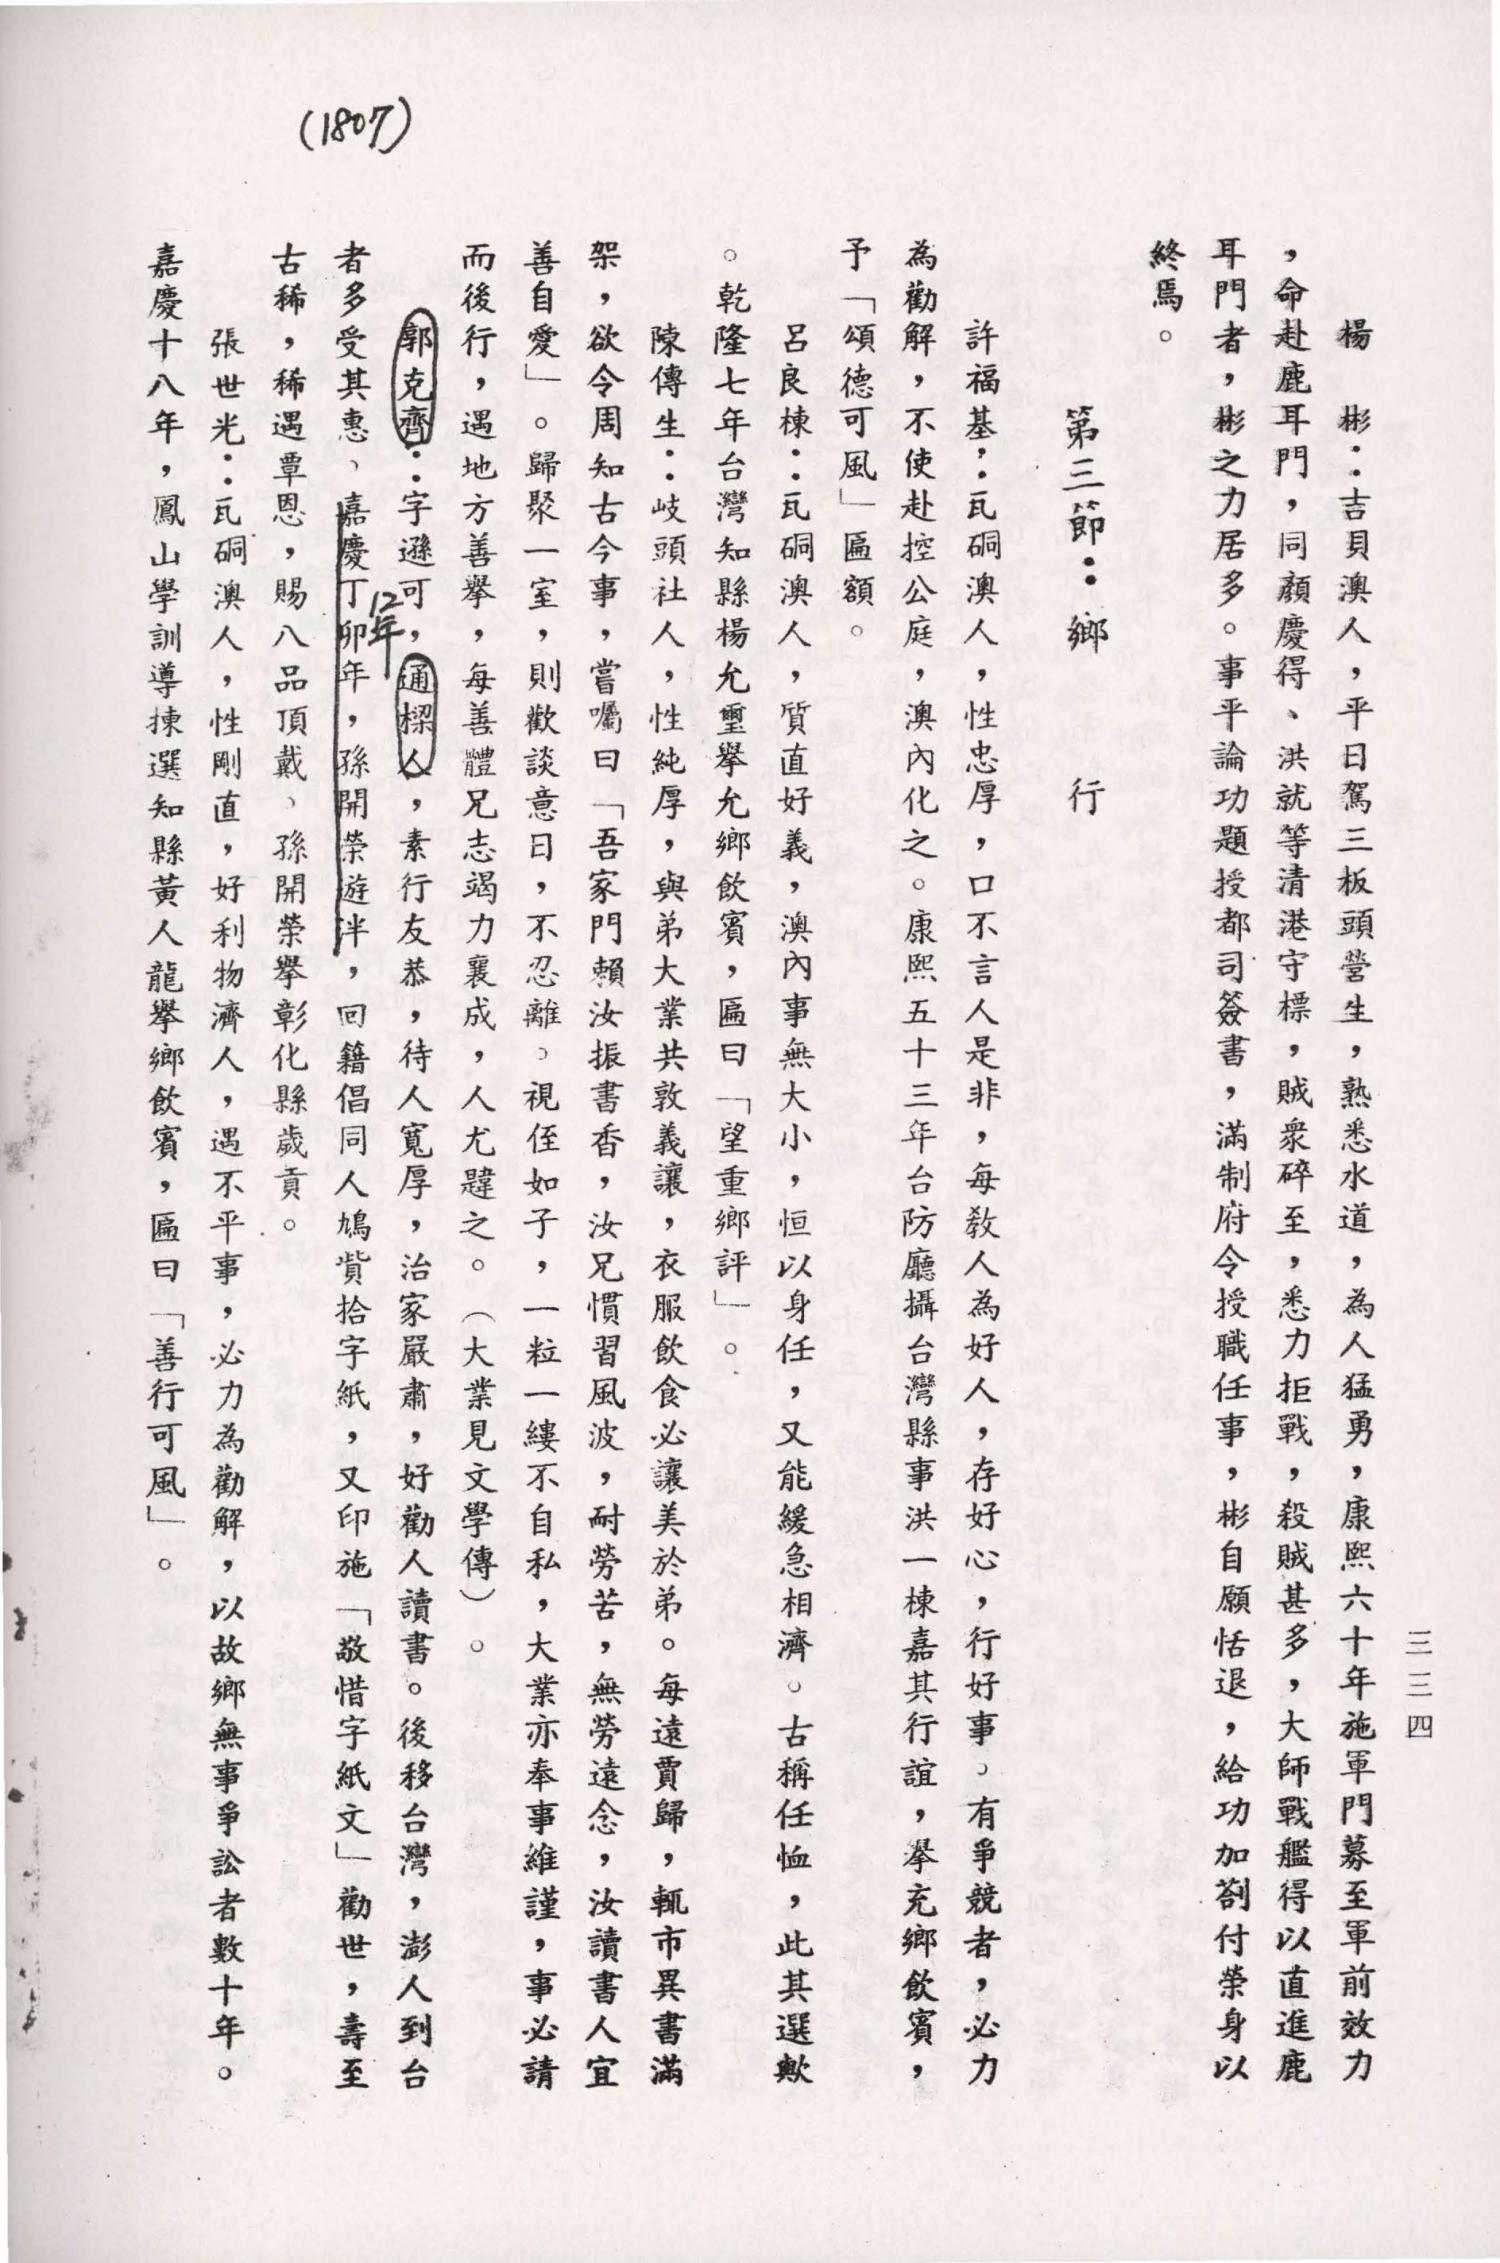 三三四
楊　彬：吉貝澳人，平日駕三板頭營生，熟悉水道，為人猛勇，康熙六十年施軍門募至軍前效力
，命赴鹿耳門，同顏慶得、洪就等清港守標，賊衆碎至，悉力拒戰，殺賊甚多，大師戰艦得以直進鹿
耳門者，彬之力居多。事平論功題授都司簽書，滿制府令授職任事，彬自願恬退，給功加劄付榮身以
終焉。
第三節：鄉　　行
許福基：瓦硐澳人，性忠厚，口不言人是非，每教人為好人，存好心，行好事。有爭競者，必力
為勸解，不使赴控公庭，澳內化之。康熙五十三年台防廳攝台灣縣事洪一棟嘉其行誼，舉充鄉飲賓，
予「頌德可風」匾額。
呂良棟：瓦硐澳人，質直好義，澳內事無大小，恒以身任，又能緩急相濟。古稱任恤，此其選歟
。乾隆七年台灣知縣楊允璽舉允鄉飲賓，匾曰「望重鄉評」。
陳傳生：岐頭社人，性純厚，與弟大業共敦義讓，衣服飲食必讓美於弟。每遠賈歸，輒市異書滿
架，欲令周知古今事，嘗囑曰「吾家門賴汝振書香，汝兄慣習風波，耐勞苦，無勞遠念，汝讀書人宜
善自愛」。歸聚一室，則歡談意日，不忍離。視侄如子，一粒一縷不自私，大業亦奉事維謹，事必請
而後行，遇地方善舉，每善體兄志竭力襄成，人尤韙之。（大業見文學傳）。
郭克齊：字遜可，通樑人，素行友恭，待人寬厚，治家嚴肅，好勸人讀書。後移台灣，澎人到台
12年
者多受其惠、嘉慶丁卯年，孫開榮遊泮，回籍倡同人鳩貲拾字紙，又印施「敬惜字紙文」勸世，壽至
(1807)
古稀，稀遇覃恩，賜八品頂戴、孫開榮舉彰化縣歲貢。
張世光：瓦硐澳人，性剛直，好利物濟人，遇不平事，必力為勸解，以故鄉無事爭訟者數十年。
嘉慶十八年，鳳山學訓導揀選知縣黃人龍舉鄉飲賓，匾曰「善行可風」。